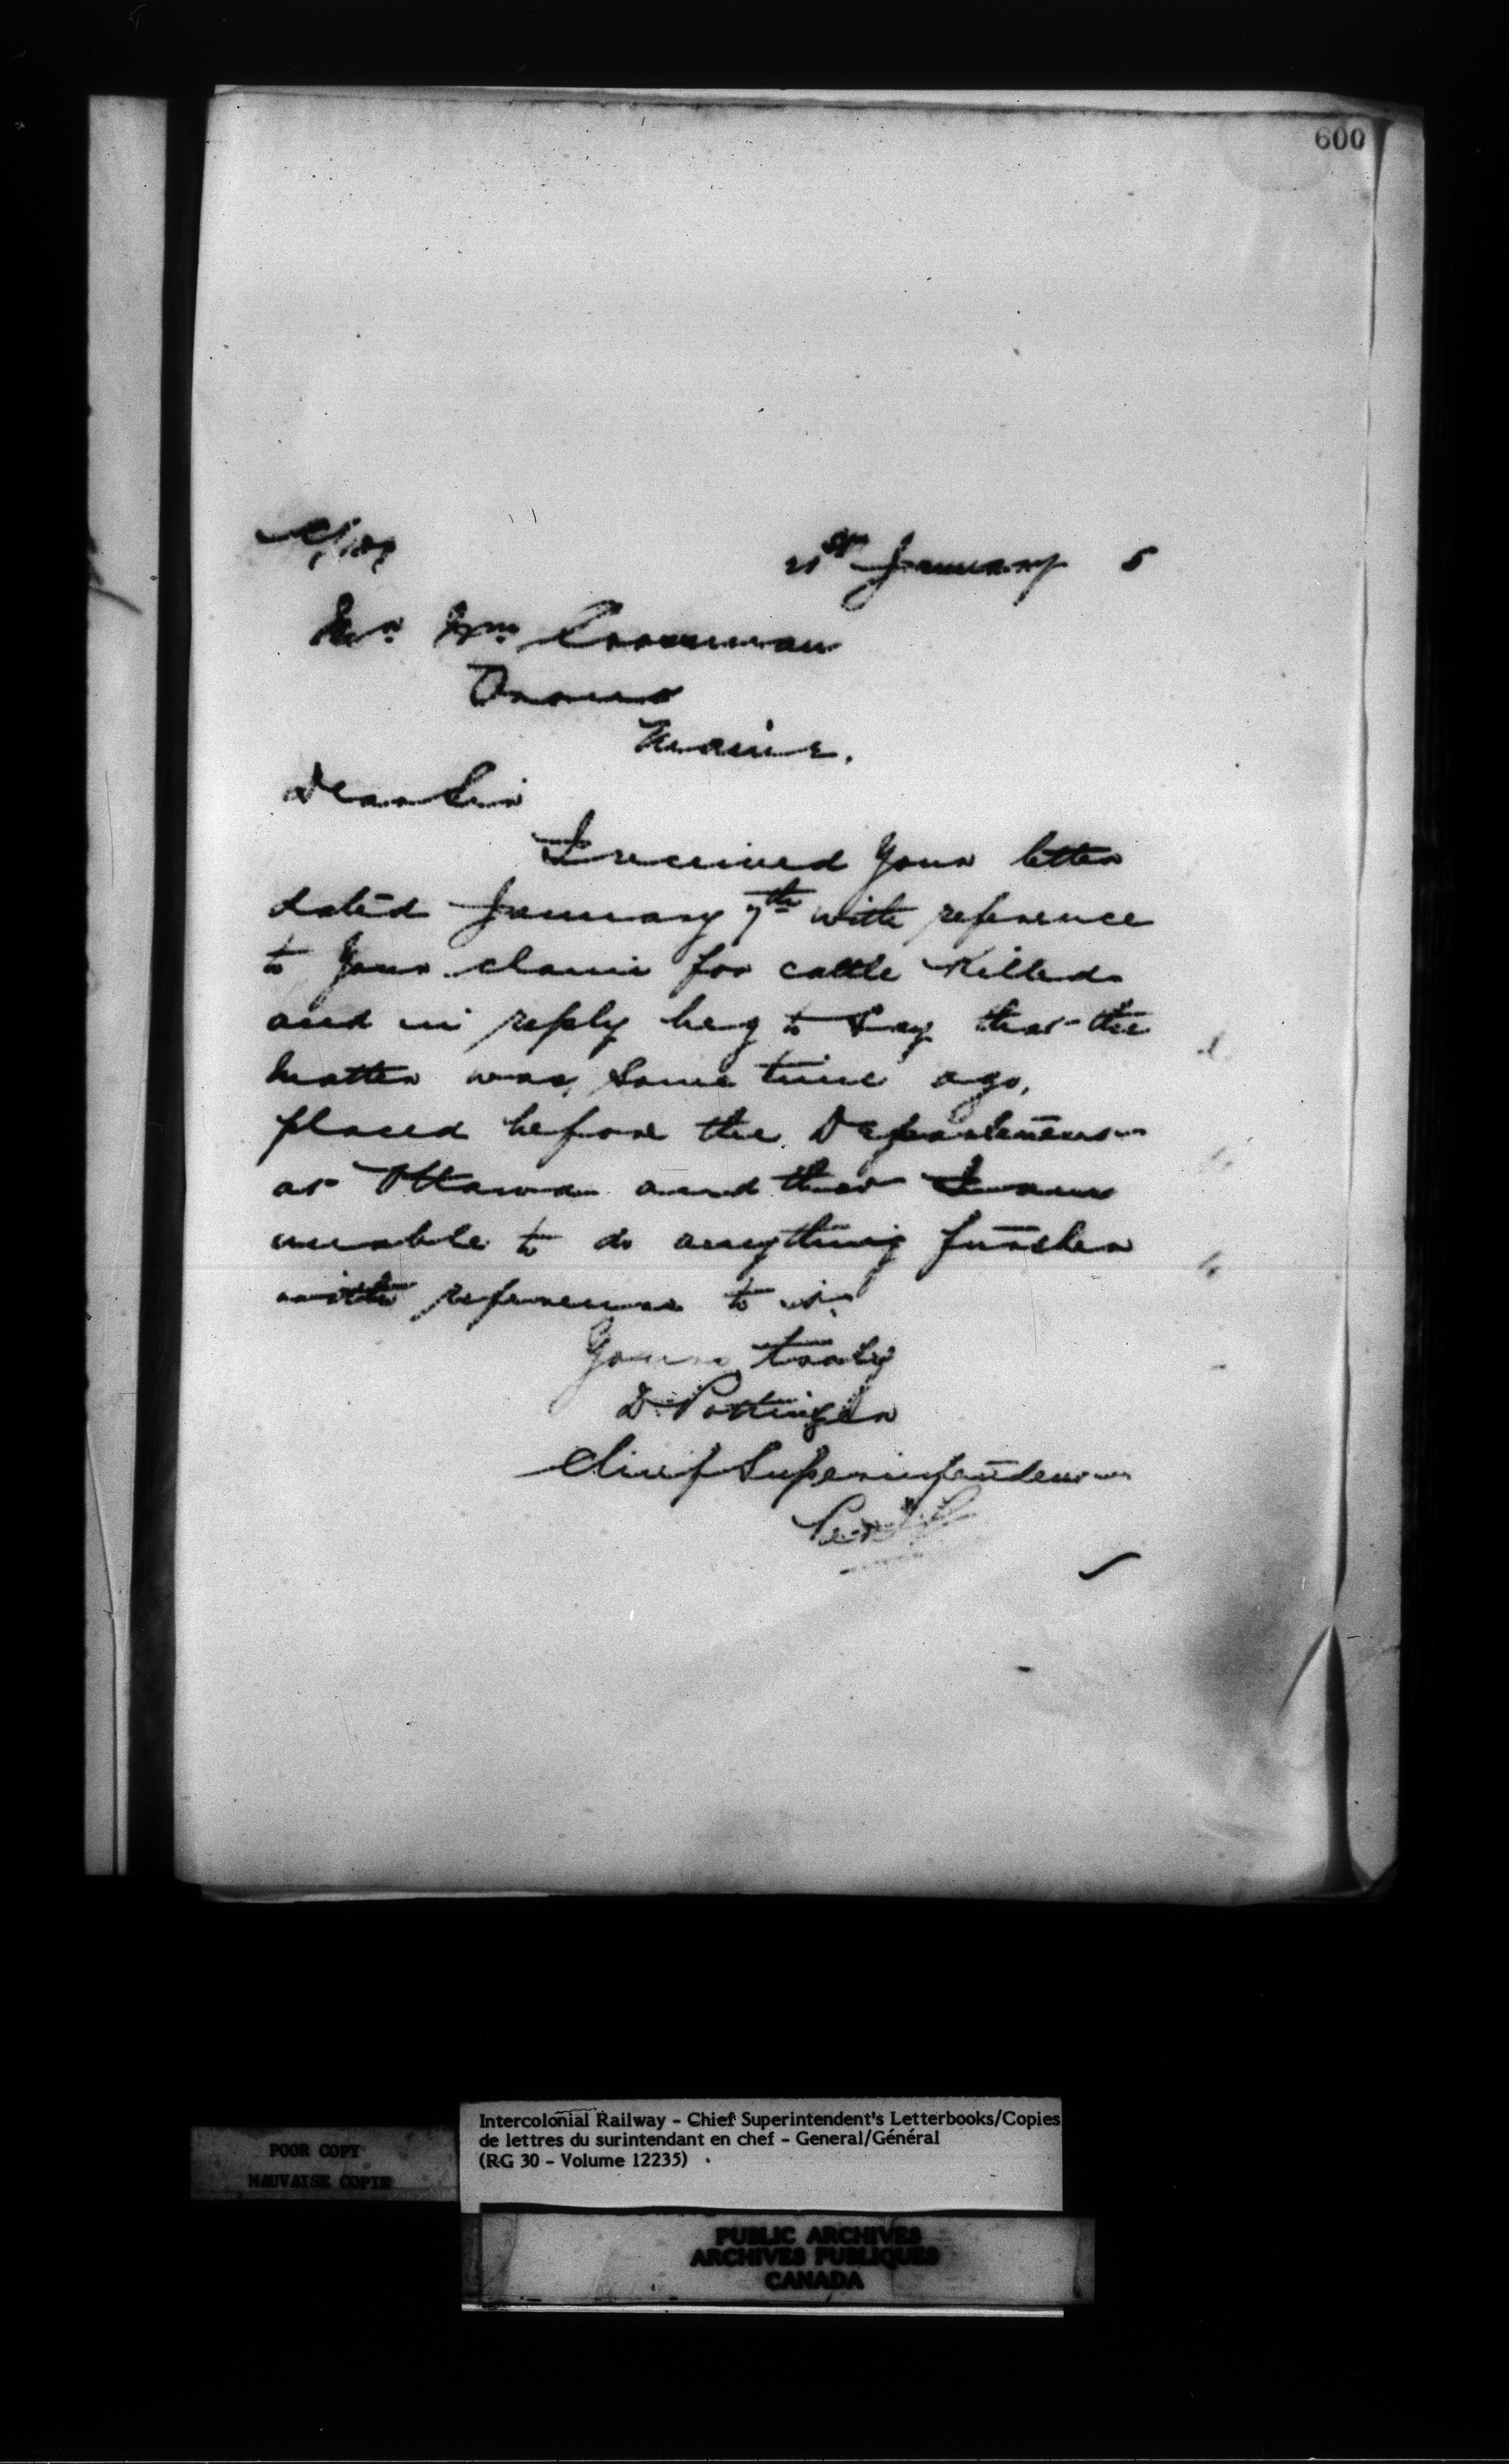 600
21st January 5
Mr. Wm.
Maine.
Dear Sir
I received your letter
dated January 7th with reference
to your claim for cattle killed
and in reply beg to say that the
matter was, some time ago,
placed before the Department
at Ottawa and that I am
unable to do anything further
with reference to it.
Yours truly
D. Pottinger
Chief Superintendent
POOR COPY
MAUVAISE COPIE
Intercolonial Railway - Chief Superintendent's Letterbooks/Copies
de lettres du surintendant en chef - General/Général
(RG 30 - Volume 12235)
PUBLIC ARCHIVES
ARCHIVES PUBLIQUES
CANADA